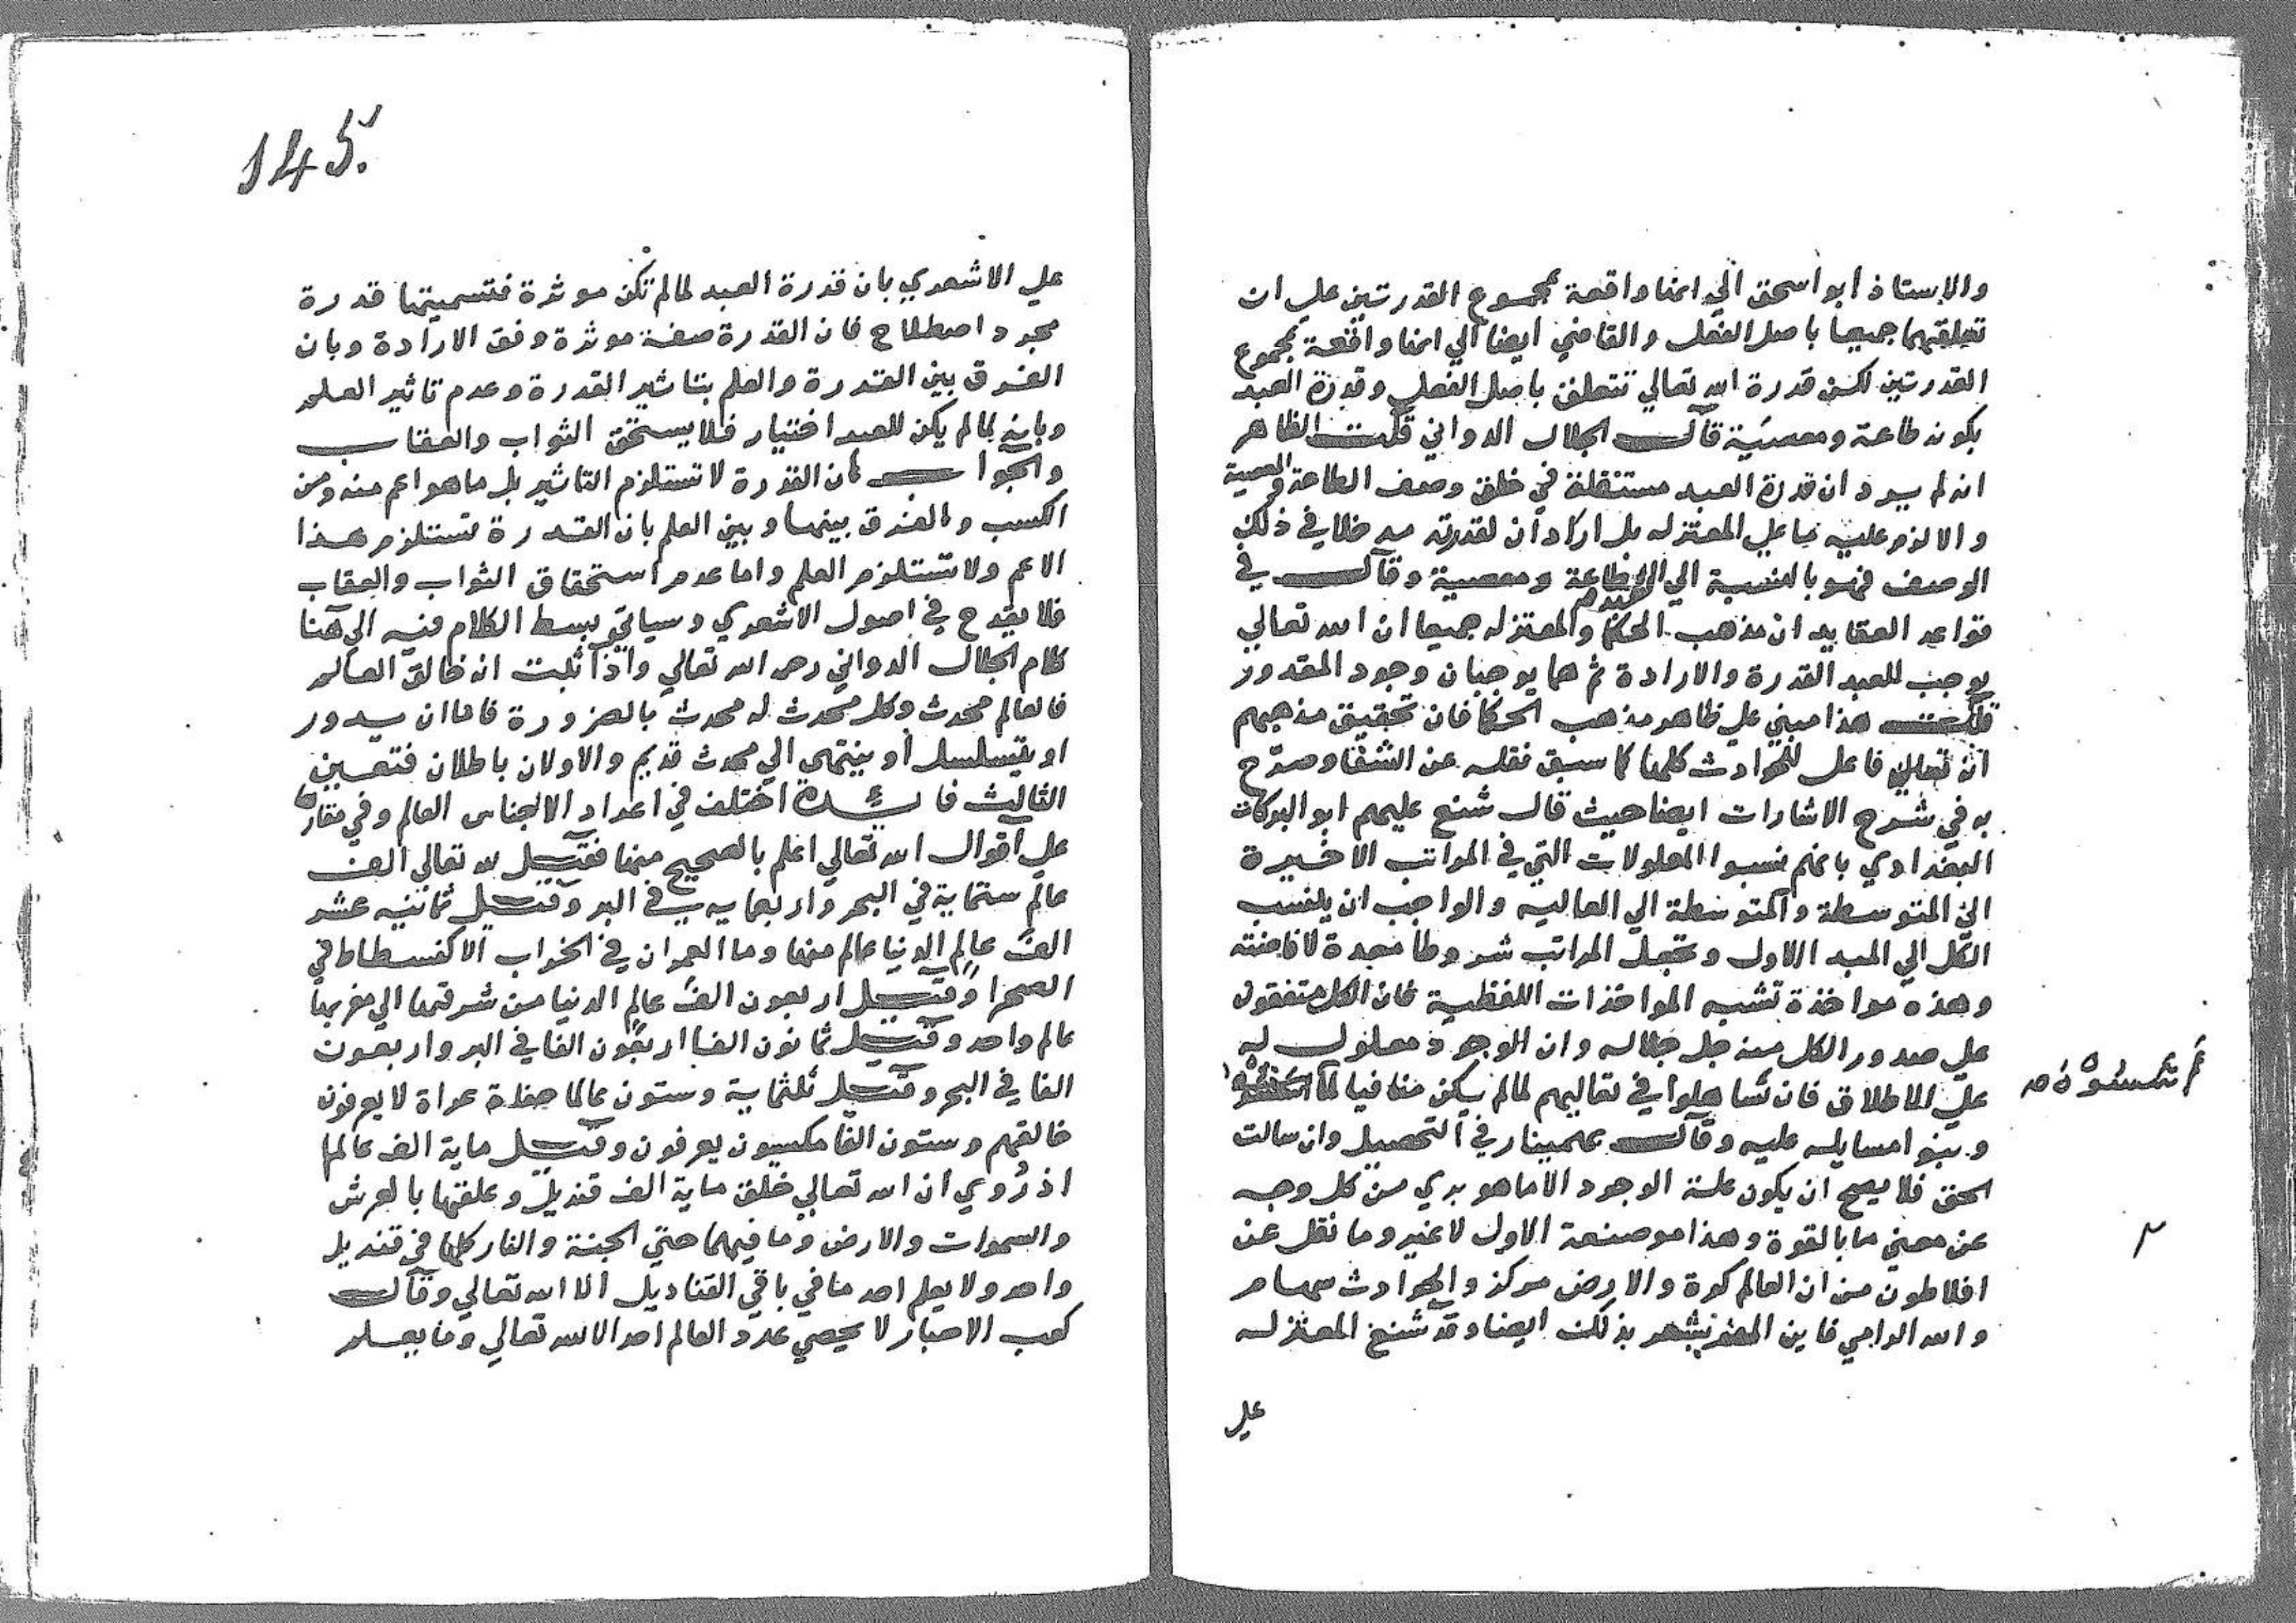 والاستاذ ابو اسحق الي انها واقعة بمجموع القدرتين علي ان
تعلقهما جميعا باصل الفعل والقاضي ايضا الي انها واقعة بمجموع
القدرتين لكن قدرة الله تعالي تتعلق باصل الفعل وقدرة العبد
بكونه طاعة ومعصية قال الجلال الدواني قلت الظاهر
انه لم يرد ان قدرة العبد مستقلة في خلق وصف الطاعة والمعصية
والا لزم عليه ما علي المعتزله بل اراد ان لقدرته مدخلا في ذلك
الوصف فهو بالنسبة الي العبد طاعة ومعصية وقال في
قواعد العقايد ان مذهب الحكما والمعتزله جميعا ان الله تعالي
يوجب للعبد القدرة والارادة ثم هما يوجبان وجود المقدور
قلت هذا مبني علي ظاهر مذهب الحكما فان تحقيق مذهبهم
انه تعالي فاعل للحوادث كلها كما سبق نقله عن الشفا وصرح
به في شرح الاشارات ايضا حيث قال شنع عليهم ابو البركات
البغدادي بانهم نسبوا المعلولات التي في المراتب الاخيرة
الي المتوسطة والمتوسطة الي العاليه والواجب ان ينسب
الكل الي المبد الاول وتجعل المراتب شروطا معدة لافاضته
وهذه مواخذة تشبه المواخذات اللفظية فان الكل متفقون
علي صدور الكل منه جل جلاله وان الوجود معلول له
علي الاطلاق فان تساهلوا في تعاليمهم لما لم يكن منافيا لما اسسوه
اسسوه صه
وبنوا مسايله عليه وقال بهمينار في التحصيل وان سالت
الحق فلا يصح ان يكون علة الوجود الا ما هو بري من كل وجه
عن معني ما بالقوة وهذا هو صفة الاول لا غير وما نقل عن
افلاطون من ان العالم كرة والارض مركز والحوادث سهام
والله الرامي فاين المفر يشعر بذلك ايضا وقد شنع المعتزله
علي
145
علي الاشعري بان قدرة العبد لما لم تكن موثرة فتسميتها قدرة
مجرد اصطلاح فان القدرة صفة موثرة وفق الارادة وبان
الفرق بين القدرة والعلم بتاثير القدرة وعدم تاثير العلم
وبانه لما لم يكن للعبد اختيار فلا يستحق الثواب والعقاب
والجواب ان القدرة لا تستلزم التاثير بل ما هو اعم منه ومن
الكسب والفرق بينها وبين العلم بان القدرة تستلزم هذا
الاعم ولا تستلزم العلم واما عدم استحقاق الثواب والعقاب
فلا يقدح في اصول الاشعري وسياتي بسط الكلام فيه الي هنا
كلام الجلال الدواني رحمه الله تعالي واذا ثبت انه خالق العالم
فالعالم محدث وكل محدث له محدث بالضرورة فاما ان يدور
او يتسلسل او ينتهي الي محدث قديم والاولان باطلان فتعين
الثالث فائدة اختلف في اعداد الاجناس العالم وفي مقارها
علي اقوال الله تعالي اعلم بالصحيح منها فقيل لله تعالي الف
عالم ستماية في البحر واربعمايه في البر وقيل ثمانيه عشر
الف عالم الدنيا عالم منها وما العمران في الخراب الا كفسطاط في
الصحرا وقيل اربعون الف عالم الدنيا من شرقها الي مغربها
عالم واحد وقيل ثمانون الفا اربعون الفا في البر واربعون
الفا في البحر وقيل ثلثماية وستون عالما حفاة عراة لا يعرفون
خالقهم وستون الفا مكسيون يعرفون وقيل ماية الف عالما
اذ روي ان الله تعالي خلق ماية الف قنديل وعلقها بالعرش
والسموات والارض وما فيهما حتي الجنة والنار كلها في قنديل
واحد ولا يعلم احد ما في باقي القناديل الا الله تعالي وقال
كعب الاحبار لا يحصي عدد العالم احد الا الله تعالي وما يعلم